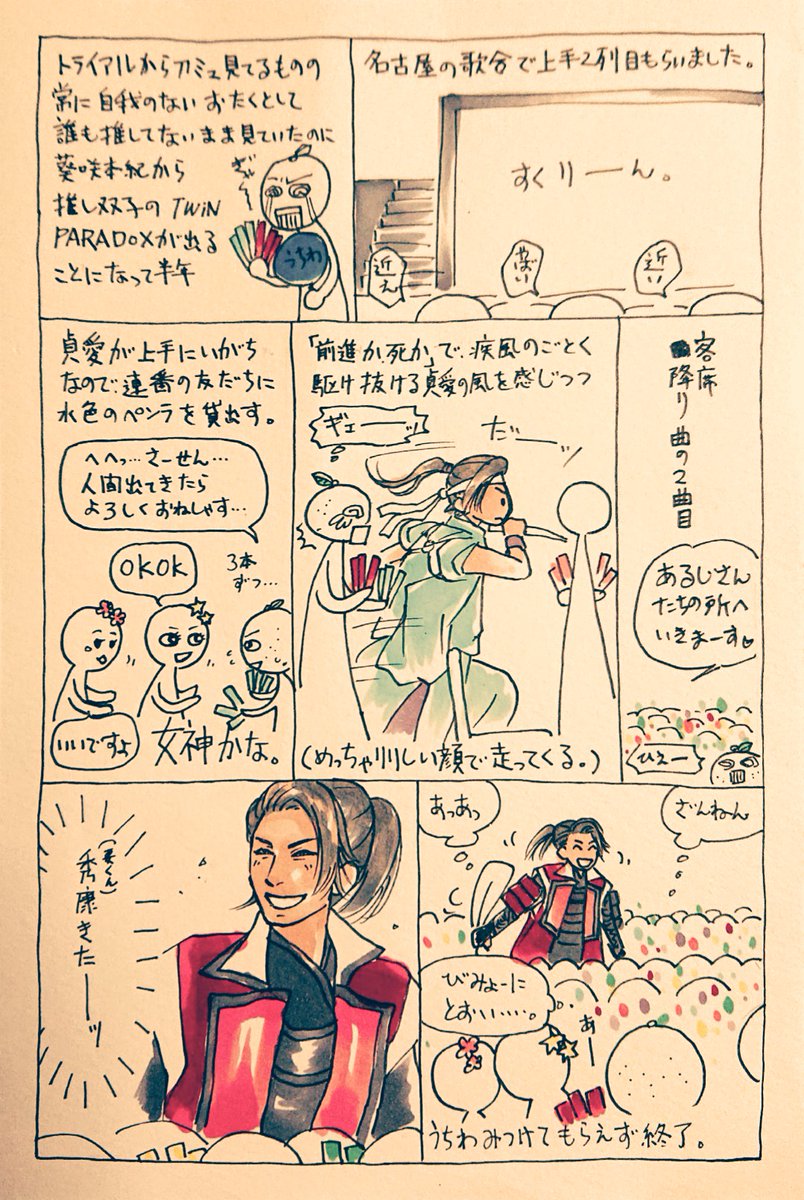 トライアルから刀ミュ見てるものの
常に自我のないおたくとして
誰も推してないまま見ていたのに
葵咲本紀から
推し双子のTWiN
PARADOXが出る
ことになって半年
ぎゃー
うちわ
名古屋の歌合で上手2列目もらいました。
すくりーん。
近え
やばい
近い
貞愛が上手にいがち
なので、連番の友だちに
水色のペンラを貸出す。
へへっ…さーせん…
人間出てきたら
よろしくおねしゃす…
OKOK
3本
ずつ…
いいですよ
女神かな。
「前進か、死か」で、疾風のごとく
駆け抜ける貞愛の風を感じつつ
ギェーーッ
だーーッ
(めっちゃりりしい顔で走ってくる。)
客席
降り曲の2曲目
あるじさん
たちの所へ
いきまーす♡
ひえー
秀康きたーーッ
あっあっ
ざんねん
びみょーに
とおい……。
あー
うちわみつけてもらえず終了。